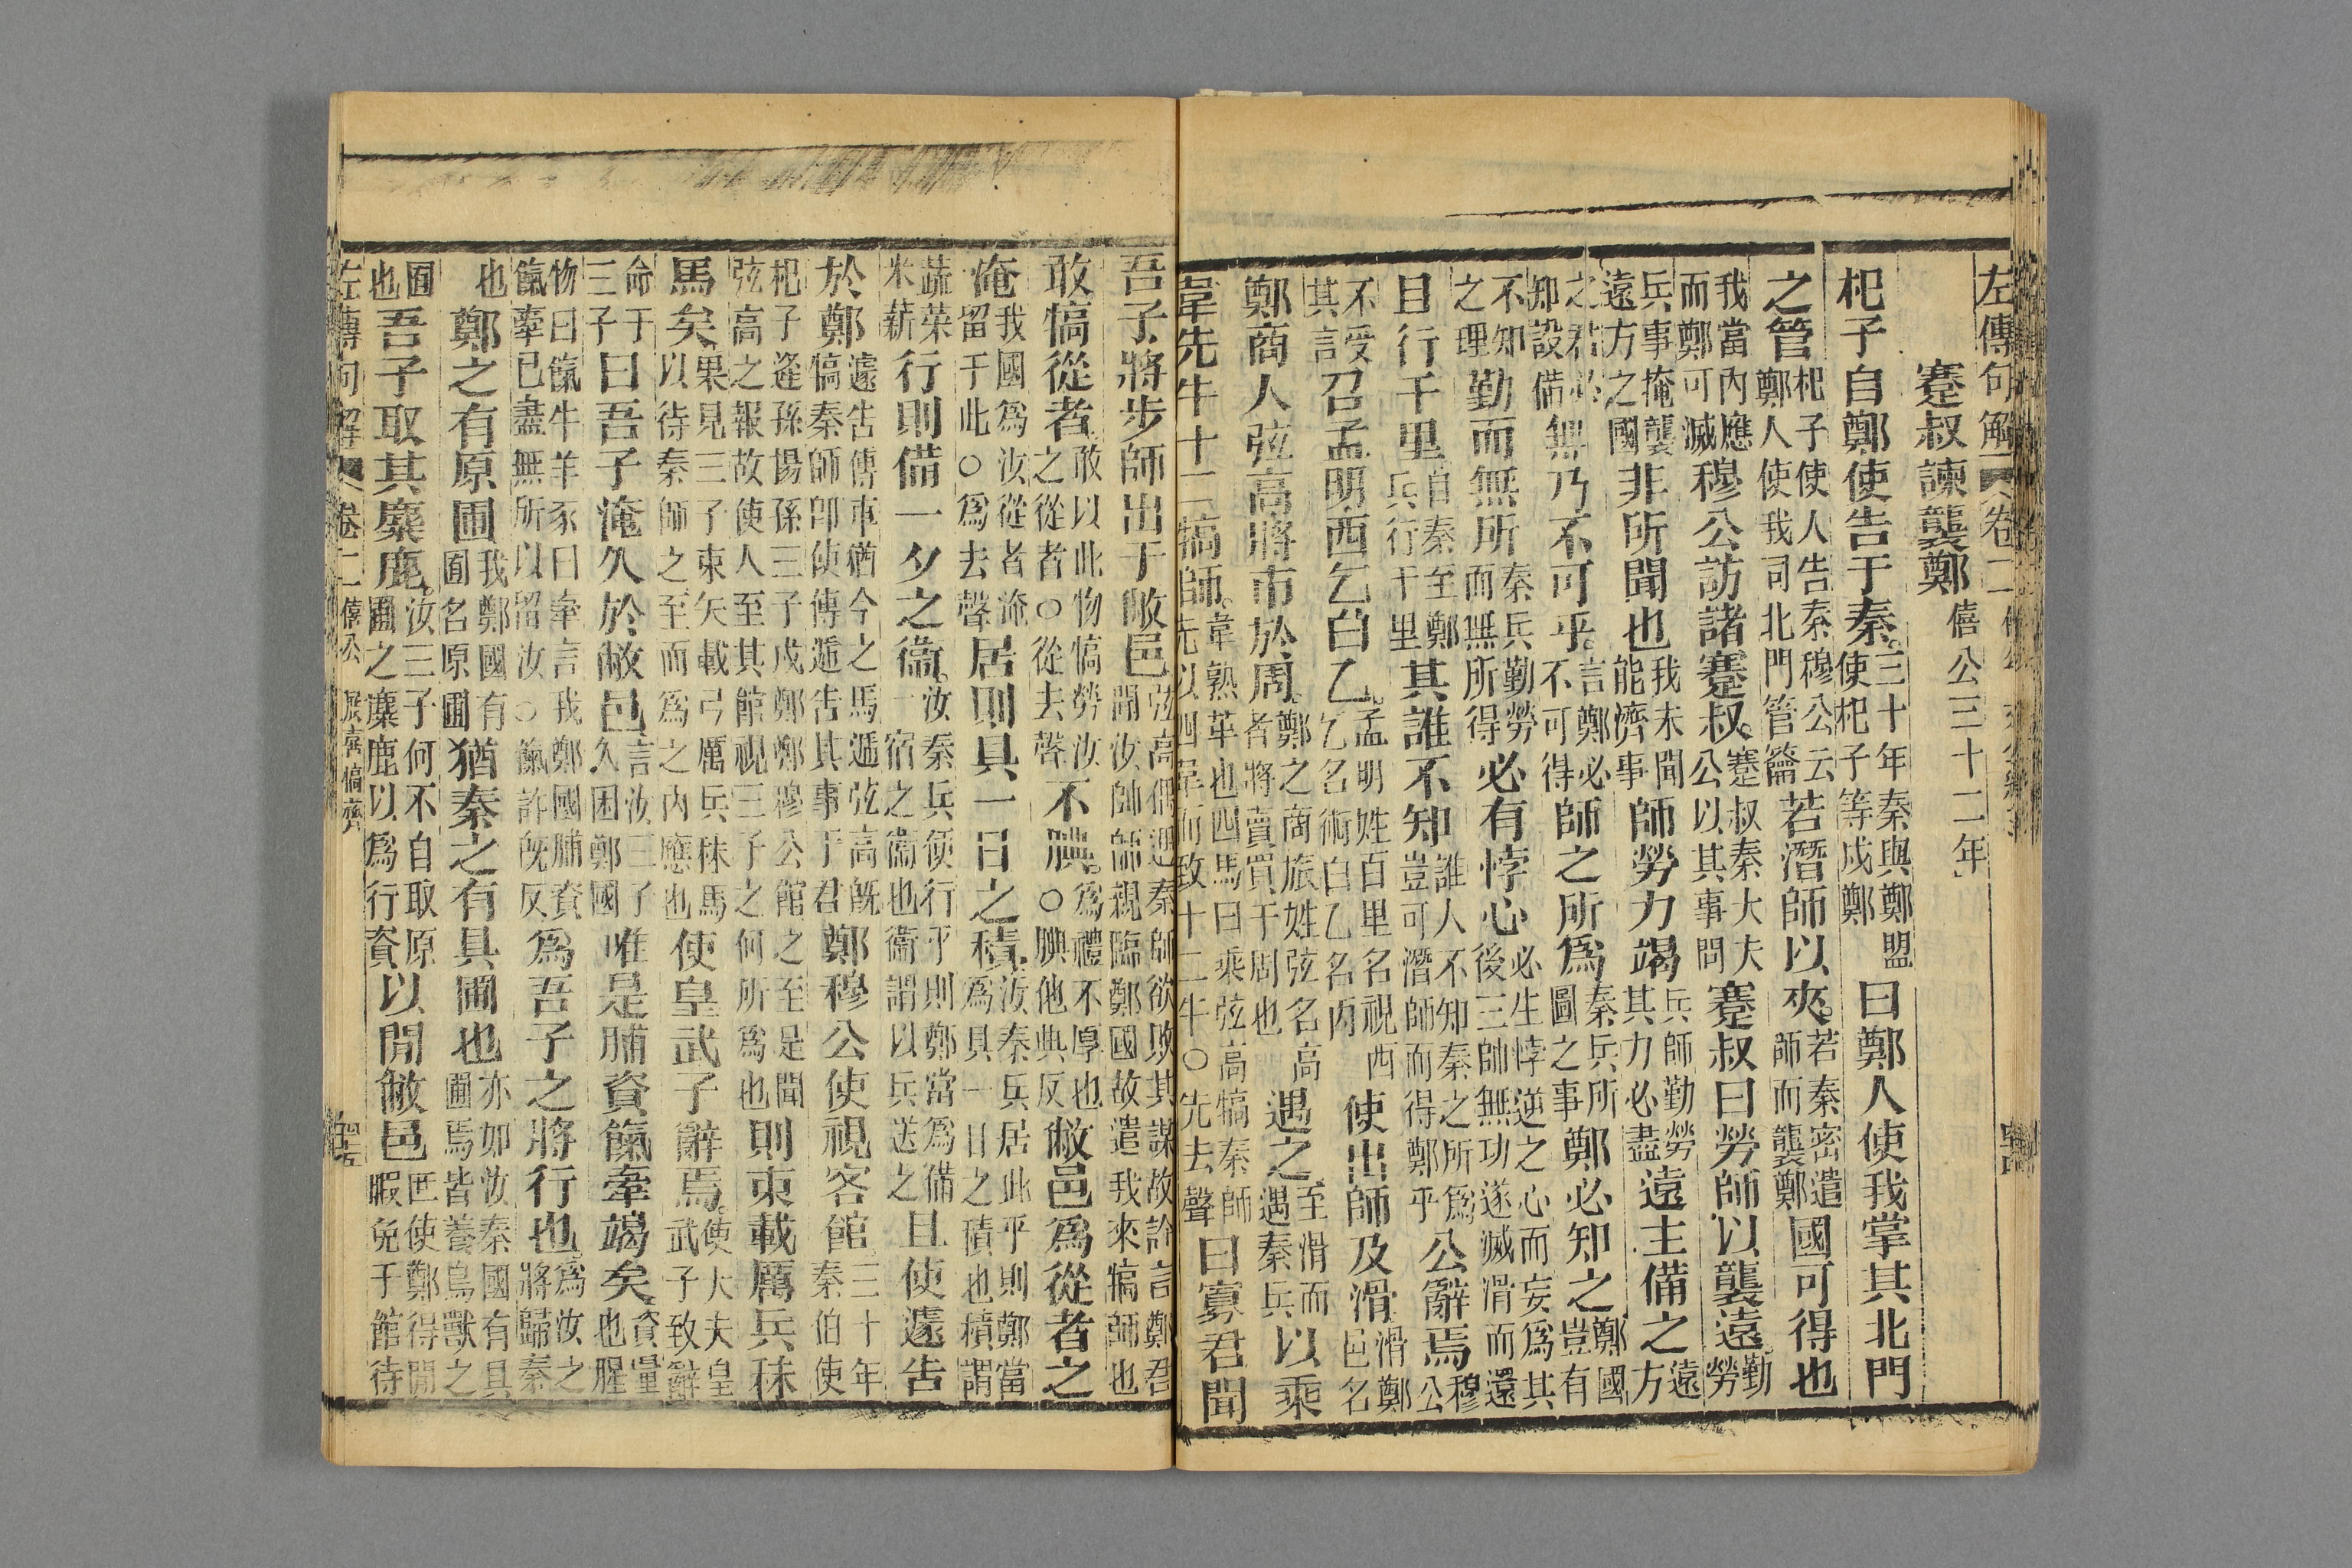 左傳句解 卷二
蹇叔諫襲鄭 僖公三十二年
杞子自鄭使告于秦 三十年秦與鄭盟 使杞子等戍鄭 曰鄭人使我掌其北門
之管 杞子使人告秦穆公云 鄭人使我司北門管籥 若潛師以來 若秦密遣 師而襲鄭 國可得也
我當內應 而鄭可滅 穆公訪諸蹇叔 蹇叔秦大夫 公以其事問 蹇叔曰勞師以襲遠 勤 勞
兵事掩襲 遠方之國 非所聞也 我未聞 能濟事 師勞力竭 兵師勤勞 其力必盡 遠主備之 遠 方
之君必 知設備 無乃不可乎 言鄭必 不可得 師之所爲 秦兵所 圖之事 鄭必知之 鄭國 豈有
不知 之理 勤而無所 秦兵勤勞 而無所得 必有悖心 必生悖逆之心而妄爲其 後三帥無功遂滅滑而還
且行千里 自秦至鄭 兵行千里 其誰不知 誰人不知秦之所爲 豈可潛師而得鄭乎 公辭焉 穆 公
不受 其言 召孟明西乞白乙 孟明姓百里名視西 乞名術白乙名丙 使出師及滑 滑鄭 邑名
鄭商人弦高將市於周 鄭之商旅姓弦名高 者將賣買于周也 遇之 至滑而 遇秦兵 以乘
韋先牛十二犒師 韋熟革也四馬曰乘弦高犒秦師 先以四韋而致十二牛○先去聲 曰寡君聞
吾子將步師出于敝邑 弦高偶遇秦師欲敗其謀故詐言鄭君 聞汝帥師親臨鄭國故遣我來犒師也
敢犒從者 敢以此物犒勞汝 之從者○從去聲 不腆 爲禮不厚也 ○腆他典反 敝邑爲從者之
淹 我國爲汝從者淹 留于此○爲去聲 居則具一日之積 汝秦兵居此乎則鄭當 爲具一日之積也積謂
蔬菜 米薪 行則備一夕之衞 汝秦兵便行乎則鄭當爲備 一宿之衞也衞謂以兵送之 且使遽告
於鄭 遽告傳車猶今之馬遞弦高旣 犒秦師卽使傳遞告其事于君 鄭穆公使視客館 三十年 秦伯使
杞子逄孫揚孫三子戍鄭鄭穆公館之至是聞 弦高之報故使人至其館視三子之何所爲也 則束載厲兵秣
馬矣 果見三子束矢載弓厲兵秣馬 以待秦師之至而爲之內應也 使皇武子辭焉 使大夫皇 武子致辭
命于 三子 曰吾子淹久於敝邑 言汝三子 久困鄭國 唯是脯資餼牽竭矣 資糧 也腥
物曰餼牛羊豕曰牽言我鄭國脯資 餼牽已盡無所以留汝○餼許旣反 爲吾子之將行也 爲汝之 將歸秦
也 鄭之有原圃 我鄭國有 囿名原圃 猶秦之有具圃也 亦如汝秦國有具 圃焉皆養鳥獸之
囿 也 吾子取其麋鹿 汝三子何不自取原 圃之麋鹿以爲行資 以閒敝邑 使鄭得閒 暇免于館待
左傳句解 卷二 僖公 展喜犒齊